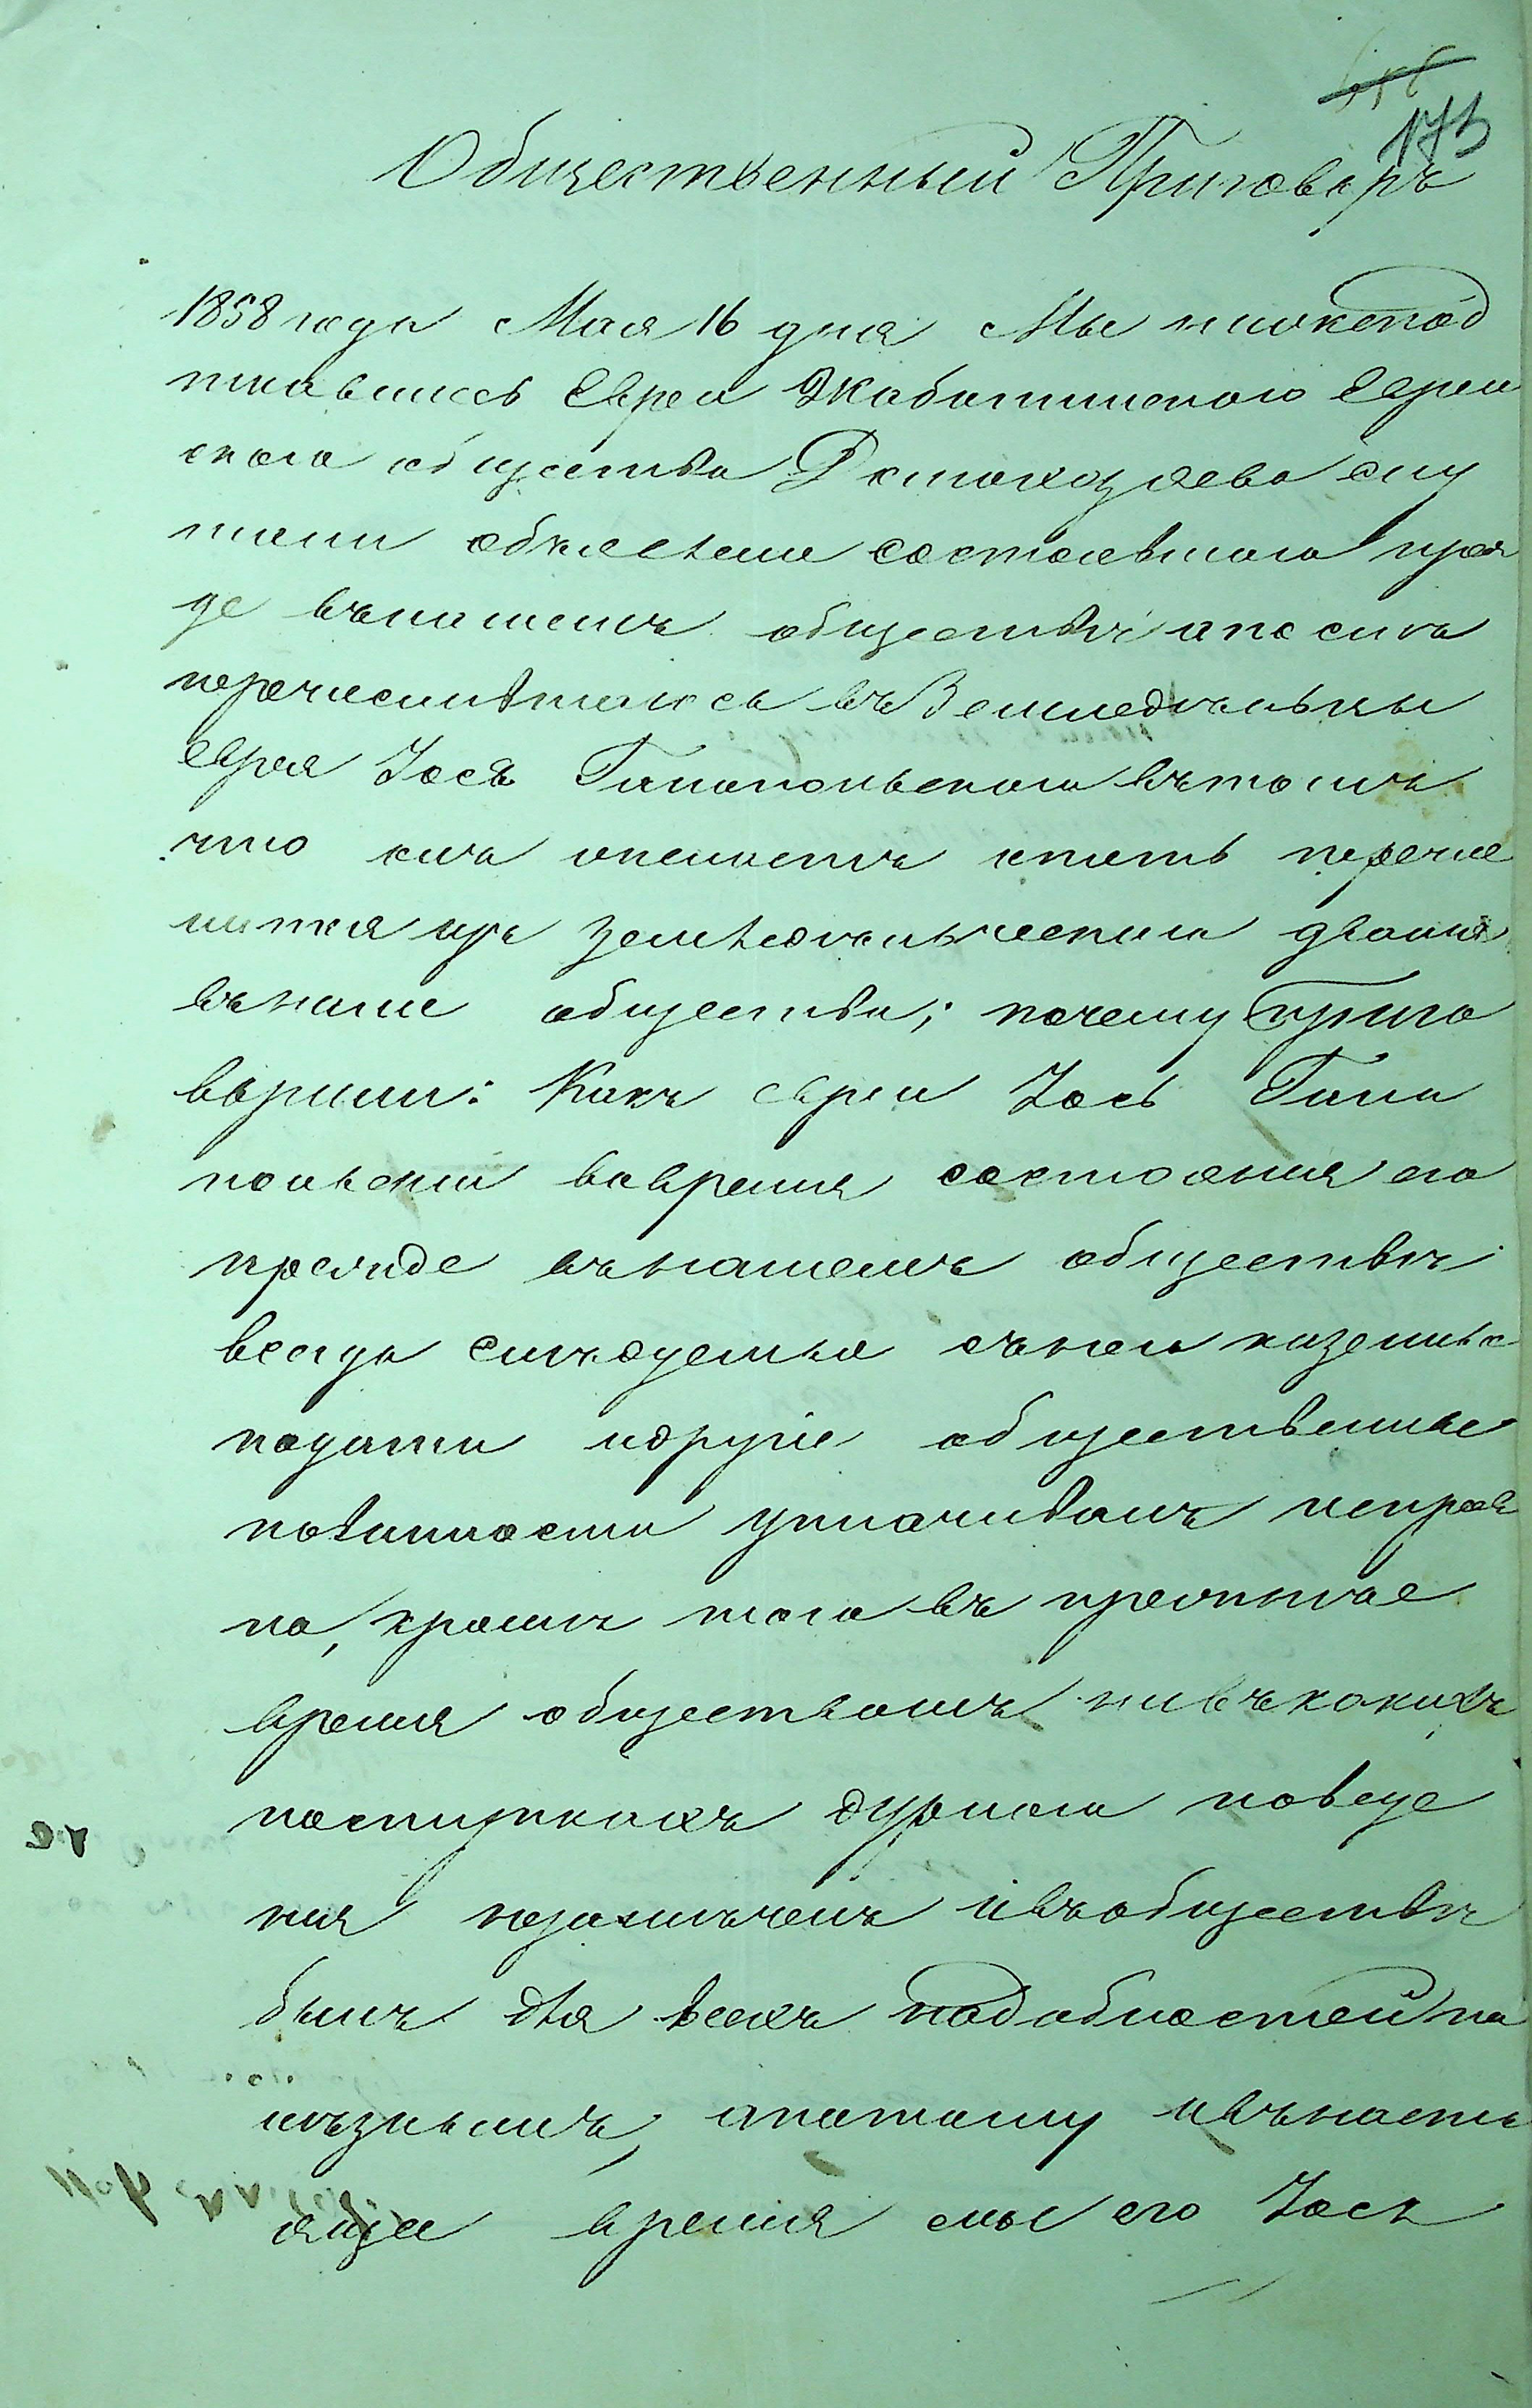 173
Общественный Приговоръ
1858 года Мая 16 дня Мы нижепод
писавшись Евреи Жаботинского Еврей
ского общества Домохозяева слу
шали объявление состоявшаго преж
де въ нашемъ обществѣ а по симъ
перечислившагося въ Земледѣльцы
еврея Іося Гапопольского въ томъ
что онъ желаетъ опять перечис
лится изъ земледѣльческаго званія
въ наше общество; почему приго
ворили: Какъ еврей Іось Гапо
польскій во время состоянія его
прежде въ нашемъ обществѣ
всегда слѣдуемые съ него казенные
подати и другіе общественные
повинности уплачивалъ исправ
но, кромѣ того въ прежнее
время обществомъ ни въ какихъ
поступкахъ дурного поведе
нія не замѣченъ и въ обществѣ
былъ для всехъ надобностей по
лѣзнымъ, а потому и въ насто
ящее время мы его Іося